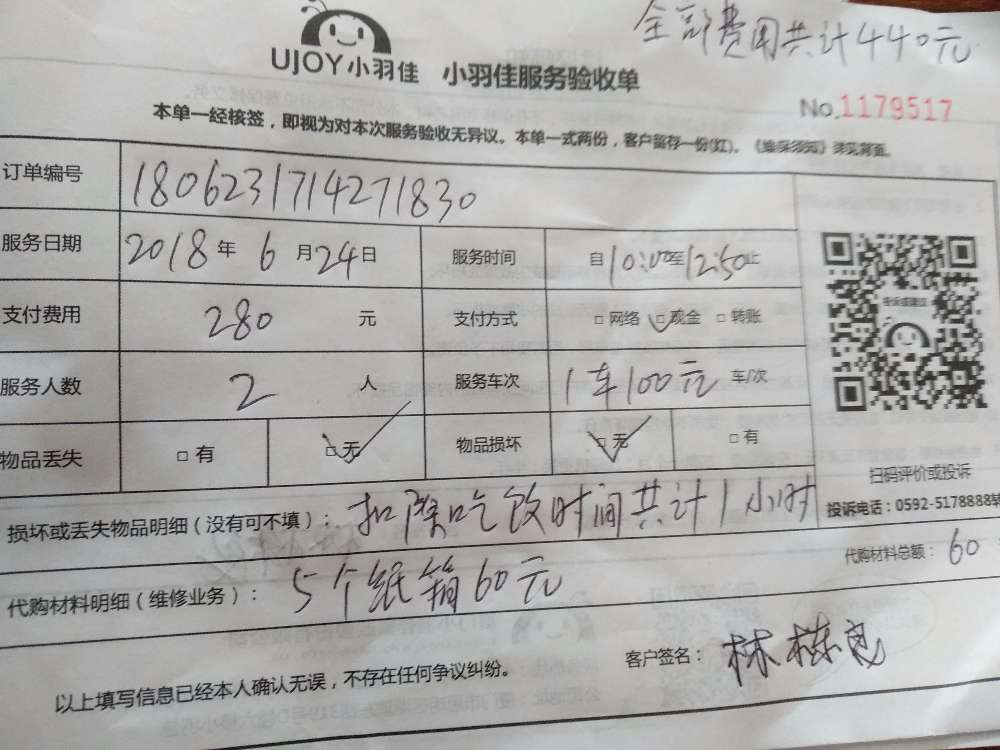 全部费用共计440元
UJOY小羽佳 小羽佳服务验收单
No.1179517
本单一经核签，即视为对本次服务验收无异议。本单一式两份，客户留存一份(红)。《维保须知》详见背面。
订单编号 1806231714271830
服务日期 2018年6月24日 服务时间 自10:00至12:50止
支付费用 280 元 支付方式 □网络 □现金 □转账
服务人数 2 人 服务车次 1车100元 车/次
物品丢失 □有 □无 物品损坏 □无 □有
扫码评价或投诉
投诉电话：0592-5178888转
损坏或丢失物品明细（没有可不填）：扣除吃饭时间共计1小时
代购材料明细（维修业务）：5个纸箱60元 代购材料总额：60
以上填写信息已经本人确认无误，不存在任何争议纠纷。 客户签名：林